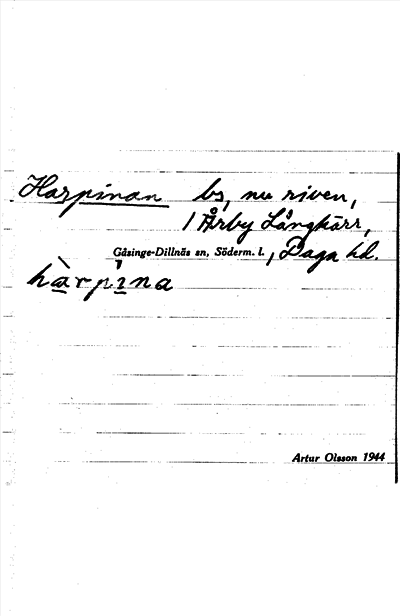 Harpinan bs, nu riven,
/ Årby Långkärr,
Gåsinge-Dillnäs sn, Söderm. l., Daga hd.
hàrpìna
Artur Olsson 1944